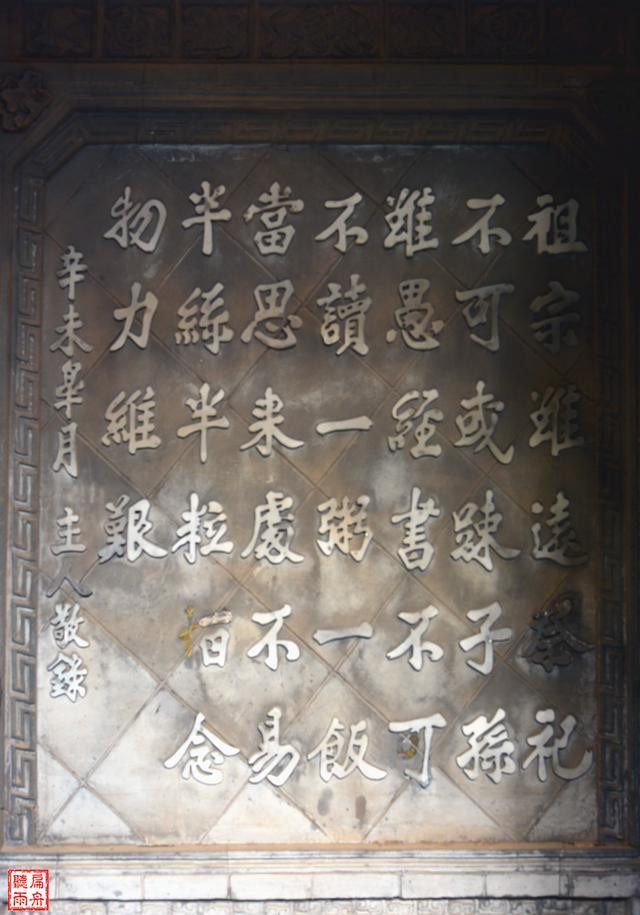 祖宗雖遠祭祀
不可或踈子孫
雖愚經書不可
不讀一粥一飯
當思来處不易
半絲半粒恒念
物力維艱
辛未皐月主人敬錄
扁舟
聽雨